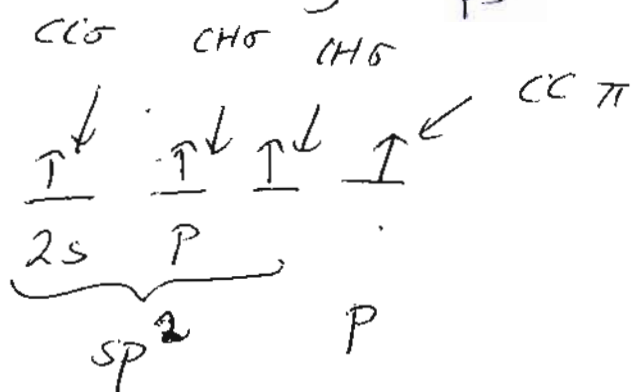 CCσ CHσ CHσ
CC π
2s P
sp2 P